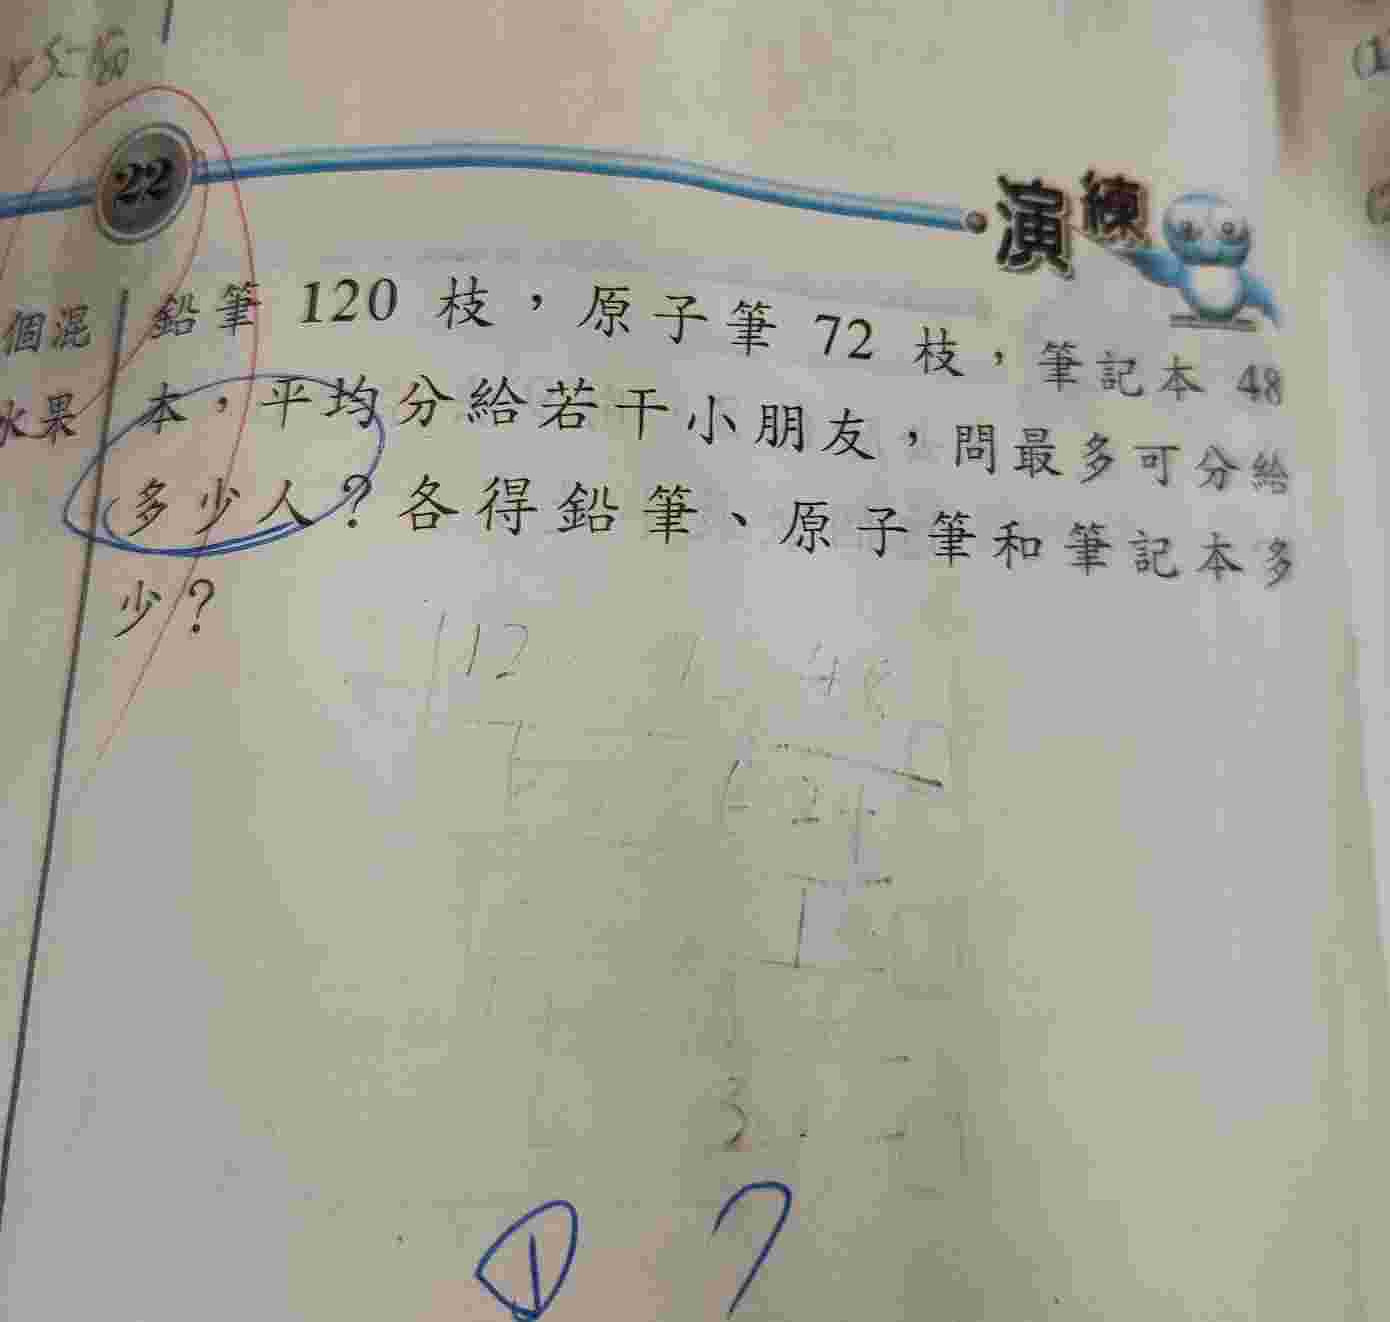 22
演練
個混
水果
鉛筆 120 枝，原子筆 72 枝，筆記本 48
本，平均分給若干小朋友，問最多可分給
多少人？各得鉛筆、原子筆和筆記本多
少？
12
48
24
3
1